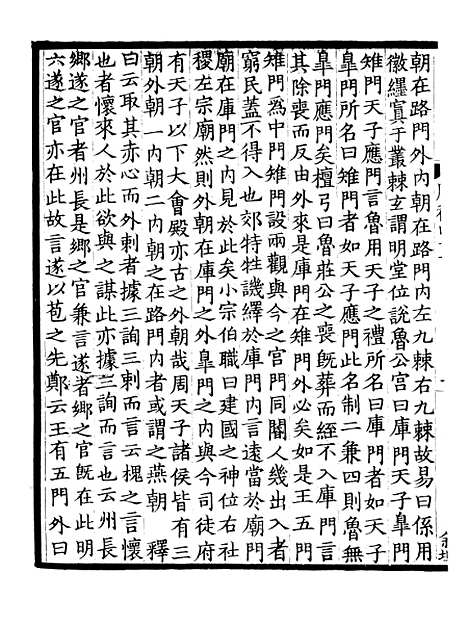 朝在路門外内朝在路門内左九棘右九棘故易曰係用
徽纆寘于叢棘玄謂明堂位說魯公宮曰庫門天子皋門
雉門天子應門言魯用天子之禮所名曰庫門者如天子
皋門所名曰雉門者如天子應門此名制二兼四則魯無
皋門應門矣檀弓曰魯莊公之喪旣葬而絰不入庫門言
其除喪而反由外來是庫門在雉門外必矣如是王五門
雉門爲中門雉門設兩觀與今之宮門同閽人幾出入者
窮民蓋不得入也郊特牲譏繹於庫門内言遠當於廟門
廟在庫門之内見於此矣小宗伯職曰建國之神位右社
稷左宗廟然則外朝在庫門之外皋門之内與今司徒府
有天子以下大會殿亦古之外朝哉周天子諸侯皆有三
朝外朝一内朝二内朝之在路門内者或謂之燕朝 釋
曰云取其赤心而外刺者據三詢三刺而言云槐之言懷
也者懷來人於此欲與之謀此亦據三詢而言也云州長
鄉遂之官者州長是鄉之官兼言遂者鄉之官旣在此明
六遂之官亦在此故言遂以苞之先鄭云王有五門外曰